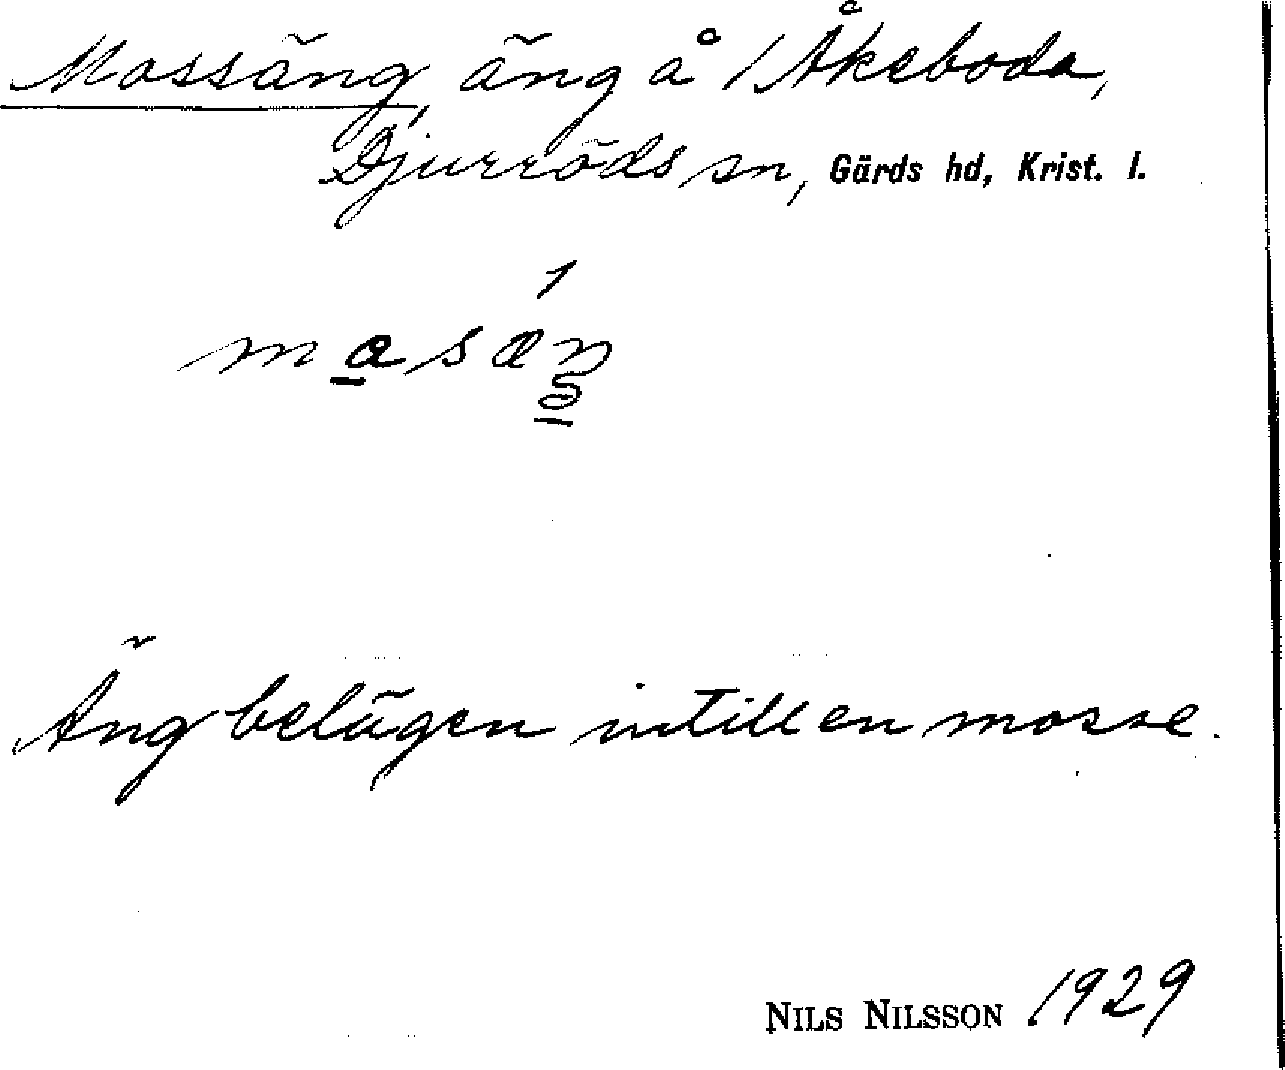 Mossäng, äng å 1 Åkeboda,
Djurröds sn, Gärds hd, Krist. l.
Äng belägen intill en mosse.
NILS NILSSON 1929